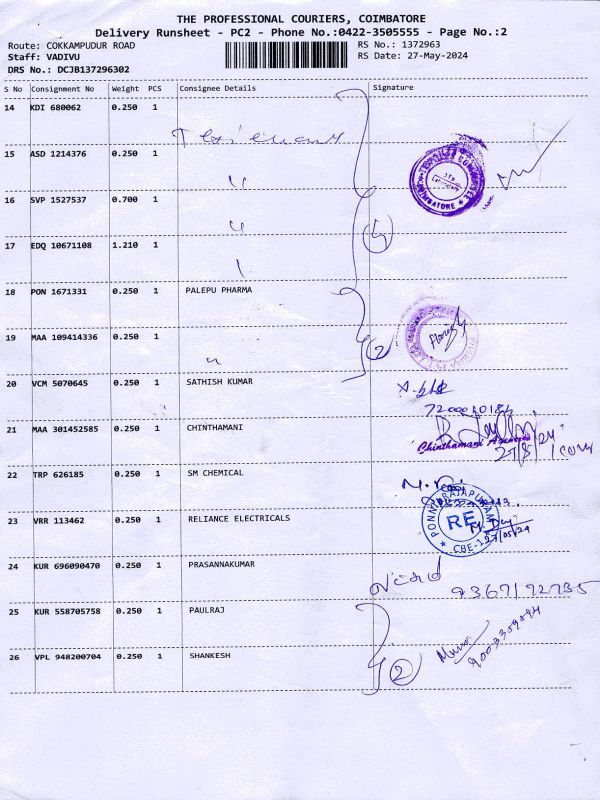 THE PROFESSIONAL COURIERS, COIMBATORE
Delivery Runsheet - PC2 - Phone No.:0422-3505555 - Page No.:2
Route: COKKAMPUDUR ROAD RS No.: 1372963
Staff: VADIVU RS Date: 27-May-2024
DRS No.: DCJB137296302
S No Consignment No Weight PCS Consignee Details Signature
14 KDI 680062 0.250 1
15 ASD 1214376 0.250 1
16 SVP 1527537 0.700 1
17 EDQ 10671108 1.210 1
18 PON 1671331 0.250 1 PALEPU PHARMA
19 MAA 109414336 0.250 1
2
20 VCM 5070645 0.250 1 SATHISH KUMAR
21 MAA 301452585 0.250 1 CHINTHAMANI
Chinthamani
22 TRP 626185 0.250 1 SM CHEMICAL
23 VRR 113462 0.250 1 RELIANCE ELECTRICALS
RE
24 KUR 696090470 0.250 1 PRASANNAKUMAR
9367192735
25 KUR 558705758 0.250 1 PAULRAJ
26 VPL 948200704 0.250 1 SHANKESH
2
9003359894